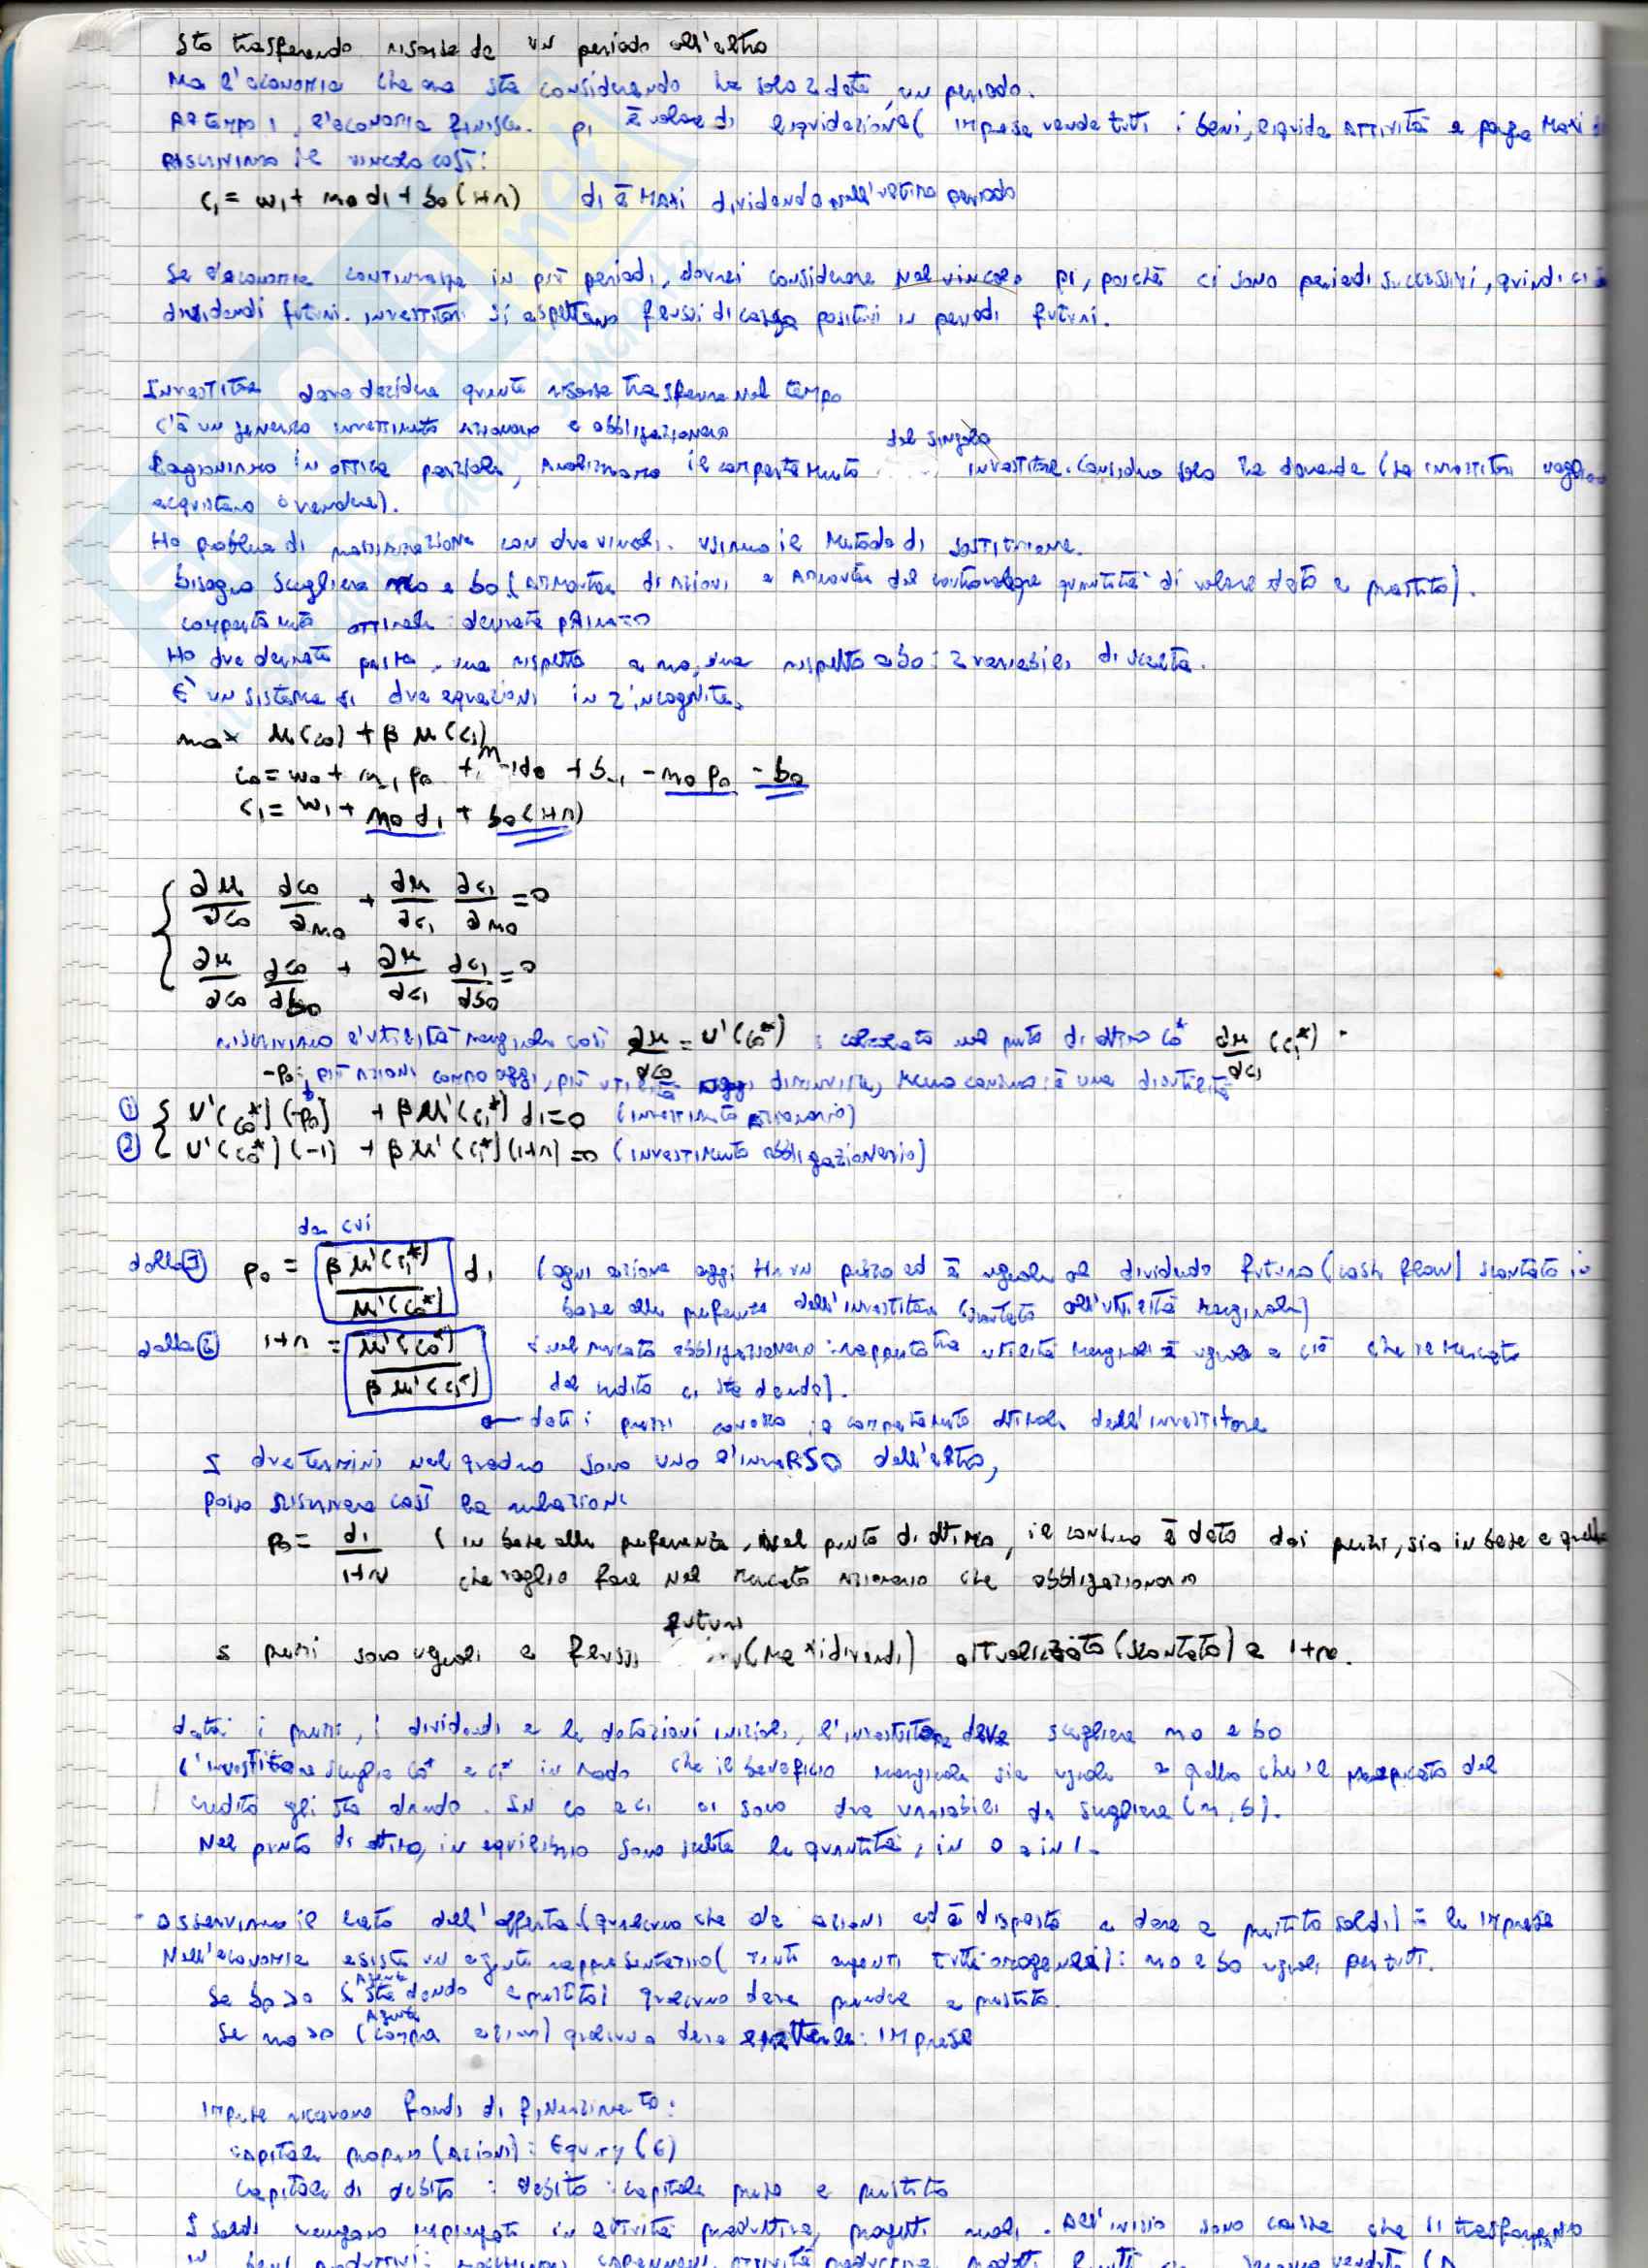 Sto trasferendo risorse da un periodo all'altro
Ma l'economia che ora sto considerando ha solo 2 date, un periodo.
Al tempo 1, l'economia finisce. p1 è valore di liquidazione (impresa vende tutti i beni, liquida attività e paga Maxi
Riscriviamo il vincolo così:
c1 = w1 + m0 d1 + b0 (1+r) d1 è Maxi dividendo nell'ultimo periodo
Se l'economia continuasse in più periodi, dovrei considerare nel vincolo p1, poichè ci sono periodi successivi, quindi ci
dividendi futuri. investitori si aspettano flussi di cassa positivi in periodi futuri.
Investitore deve decidere quante risorse trasferire nel tempo
c'è un generico investimento azionario e obbligazionario
del singolo
Ragioniamo in ottica parziale, Analizziamo il comportamento investitore. Considero solo la domanda (se investitori vogliono
acquistare o vendere).
Ho problema di massimizzazione con due vincoli. usiamo il Metodo di sostituzione.
bisogna scegliere m0 e b0 (ammontare di azioni e ammontare del controvalore quantità di valore dato a prestito).
comportamento ottimale: derivata prima = 0
Ho due derivate parziali, una rispetto a m0, una rispetto a b0: 2 variabili di scelta.
E' un sistema di due equazioni in 2 incognite.
max u(c0) + β u(c1)
c0 = w0 + m-1 p0 + m-1 d0 + b-1 - m0 p0 - b0
c1 = w1 + m0 d1 + b0 (1+r)
∂u/∂c0 ∂c0/∂m0 + ∂u/∂c1 ∂c1/∂m0 = 0
∂u/∂c0 ∂c0/∂b0 + ∂u/∂c1 ∂c1/∂b0 = 0
riscriviamo l'utilità marginale così ∂u/∂c0 = u'(c0*) : calcolata nel punto di ottimo c0* ∂u/∂c1 (c1*)
-p0: più azioni compro oggi, più utilità oggi diminuisce, meno consumo: è una disutilità
① u'(c0*) (-p0) + β u'(c1*) d1 = 0 (investimento azionario)
② u'(c0*) (-1) + β u'(c1*) (1+r) = 0 (investimento obbligazionario)
da cui
dalla ① p0 = β u'(c1*) / u'(c0*) d1 (ogni azione oggi ha un prezzo ed è uguale al dividendo futuro (cash flow) scontato in
base alle preferenze dell'investitore (scontato all'utilità marginale)
dalla ② 1+r = u'(c0*) / β u'(c1*) (nel mercato obbligazionario: rapporto tra utilità marginali è uguale a ciò che il mercato
del credito ci sta dando).
dati i prezzi conosco il comportamento ottimale dell'investitore
I due termini nel quadro sono uno l'inverso dell'altro,
posso riscrivere così la relazione
p0 = d1 / 1+r (in base alle preferenze, nel punto di ottimo, il consumo è dato dai prezzi, sia in base a quello
che voglio fare nel mercato azionario che obbligazionario
futuri
I prezzi sono uguali a flussi (Maxi dividendi) attualizzato (scontato) a 1+r0.
dati i prezzi, i dividendi e le dotazioni iniziali, l'investitore deve scegliere m0 e b0
L'investitore sceglie c0* e c1* in modo che il beneficio marginale sia uguale a quello che il mercato del
credito gli sta dando. In c0 e c1 ci sono due variabili da scegliere (m, b).
Nel punto di ottimo, in equilibrio sono scelte le quantità, in 0 e in 1.
- Osserviamo il lato dell'offerta (qualcuno che dà azioni ed è disposto a dare a prestito soldi) = le imprese
Nell'economia esiste un agente rappresentativo (tanti agenti tutti omogenei): m0 e b0 uguali per tutti.
Agente
Se b0 > 0 (sta dando a prestito) qualcuno deve prendere a prestito.
Agente
Se m0 > 0 (compra azioni) qualcuno deve emetterle: imprese
Imprese ricevono fondi di finanziamento:
capitale proprio (azioni): Equity (E)
capitale di debito: debito: capitale preso a prestito
I soldi vengono impiegati in attività produttive, progetti reali. All'inizio sono cassa che si trasformano